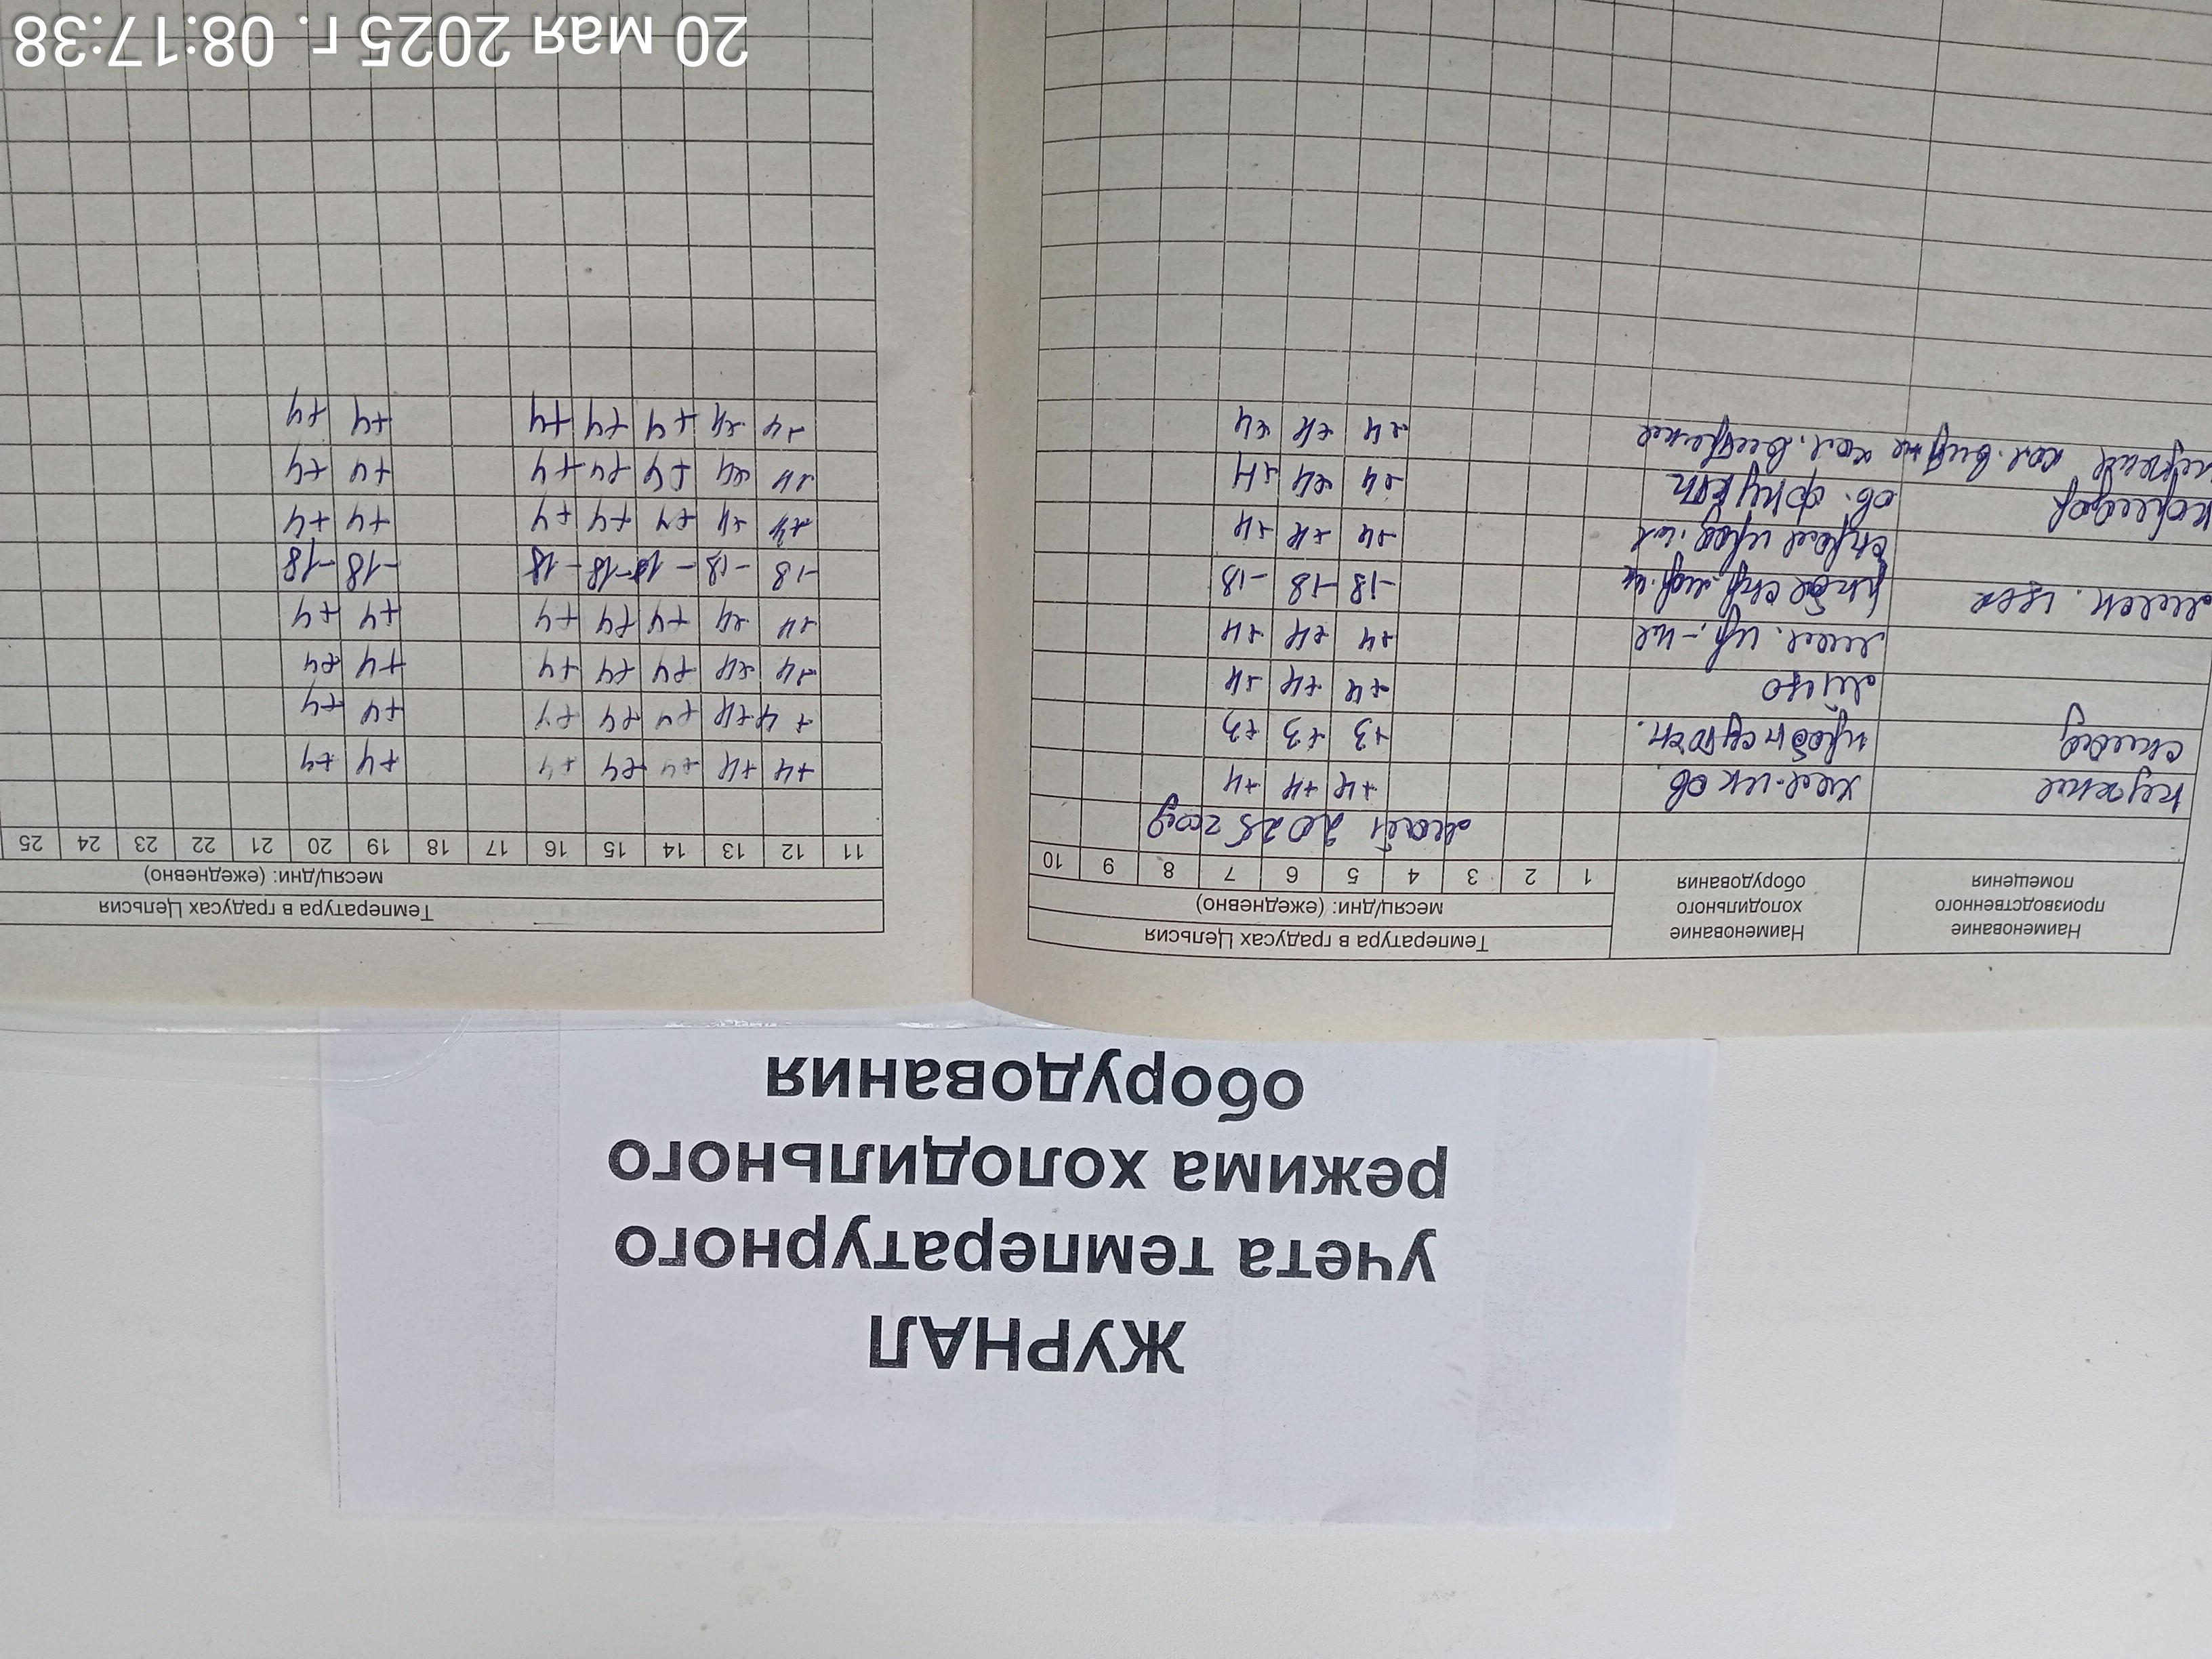 ЖУРНАЛ
учета температурного
режима холодильного
оборудования
Наименование производственного помещения
Наименование холодильного оборудования
Температура в градусах Цельсия
месяц/дни: (ежедневно)
1 2 3 4 5 6 7 8 9 10
Температура в градусах Цельсия
месяц/дни: (ежедневно)
11 12 13 14 15 16 17 18 19 20 21 22 23 24 25
май 2025 год
+4 +4 +4 +4 +4 +4 +4 +4 +4 +4
склад +3 +3 +3 +4 +4 +4 +4 +4 +4 +4
мясо +4 +4 +4 +4 +4 +4 +4 +4 +4 +4
+4 +4 +4 +4 +4 +4 +4 +4 +4 +4
-18 -18 -18 -18 -18 -18 -18 -18 -18 -18
+4 +4 +4 +4 +4 +4 +4 +4 +4 +4
коридор +4 +4 +4 +4 +4 +4 +4 +4 +4 +4
+4 +4 +4 +4 +4 +4 +4 +4 +4 +4
20 мая 2025 г. 08:17:38